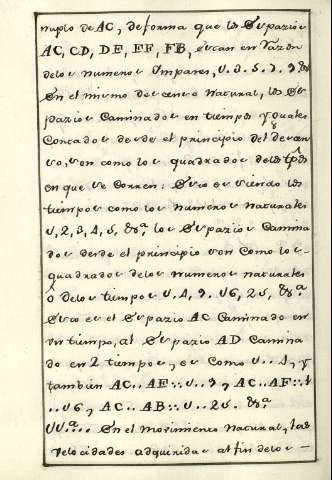 nuplo de AC, de forma que los Espazios
AC, CD, DE, EF, FB, estan en razon
de los numeros Impares, 1. 3. 5. 7. 9 &a
En el mismo descenso Natural, los Es-
pazios Caminados en tiempos Yguales
Contados desde el principio del descen
so, son como los quadrados de los tpos
en que se Corren: Esto es siendo los
tiempos como los numeros Naturales
1, 2, 3, 4, 5, &a, los Espazios Camina
dos desde el principio son Como los-
quadrados de los numeros naturales
ô de los tiempos 1. 4, 9. 16, 25, &a.
Esto es el Espazio AC Caminado en
un tiempo, al Espazio AD Camina
do en 2 tiempos, es Como 1.. 4, y
tambien AC.. AE :: 1.. 9, AC.. AF :: 1
.. 16, AC.. AB :: 1.. 25. &a.
En el Movimiento Natural, las
velocidades adquiridas al fin de los -